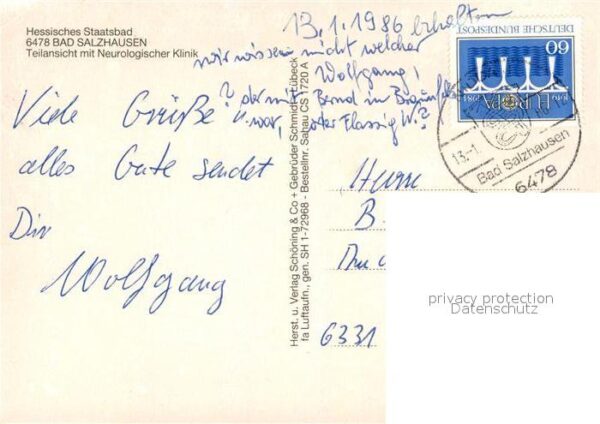 Hessisches Staatsbad
6478 BAD SALZHAUSEN
Teilansicht mit Neurologischer Klinik
13.1.1986 erhalten
wir wissen nicht welcher
Wolfgang!
? der mit Bernd in
war, oder Flassig W.?
Viele Grüße u.
alles Gute sendet
Dir
Wolfgang
Herst. u. Verlag Schöning & Co + Gebrüder Schmidt, Lübeck
fa Luftaufn., gen. SH 1-72968 - Bestellnr. Sahau CS 1720 A
DEUTSCHE BUNDESPOST
60
EUROPA
1984
13.-1.
Bad Salzhausen
6478
Herrn
B.
6331
privacy protection
Datenschutz